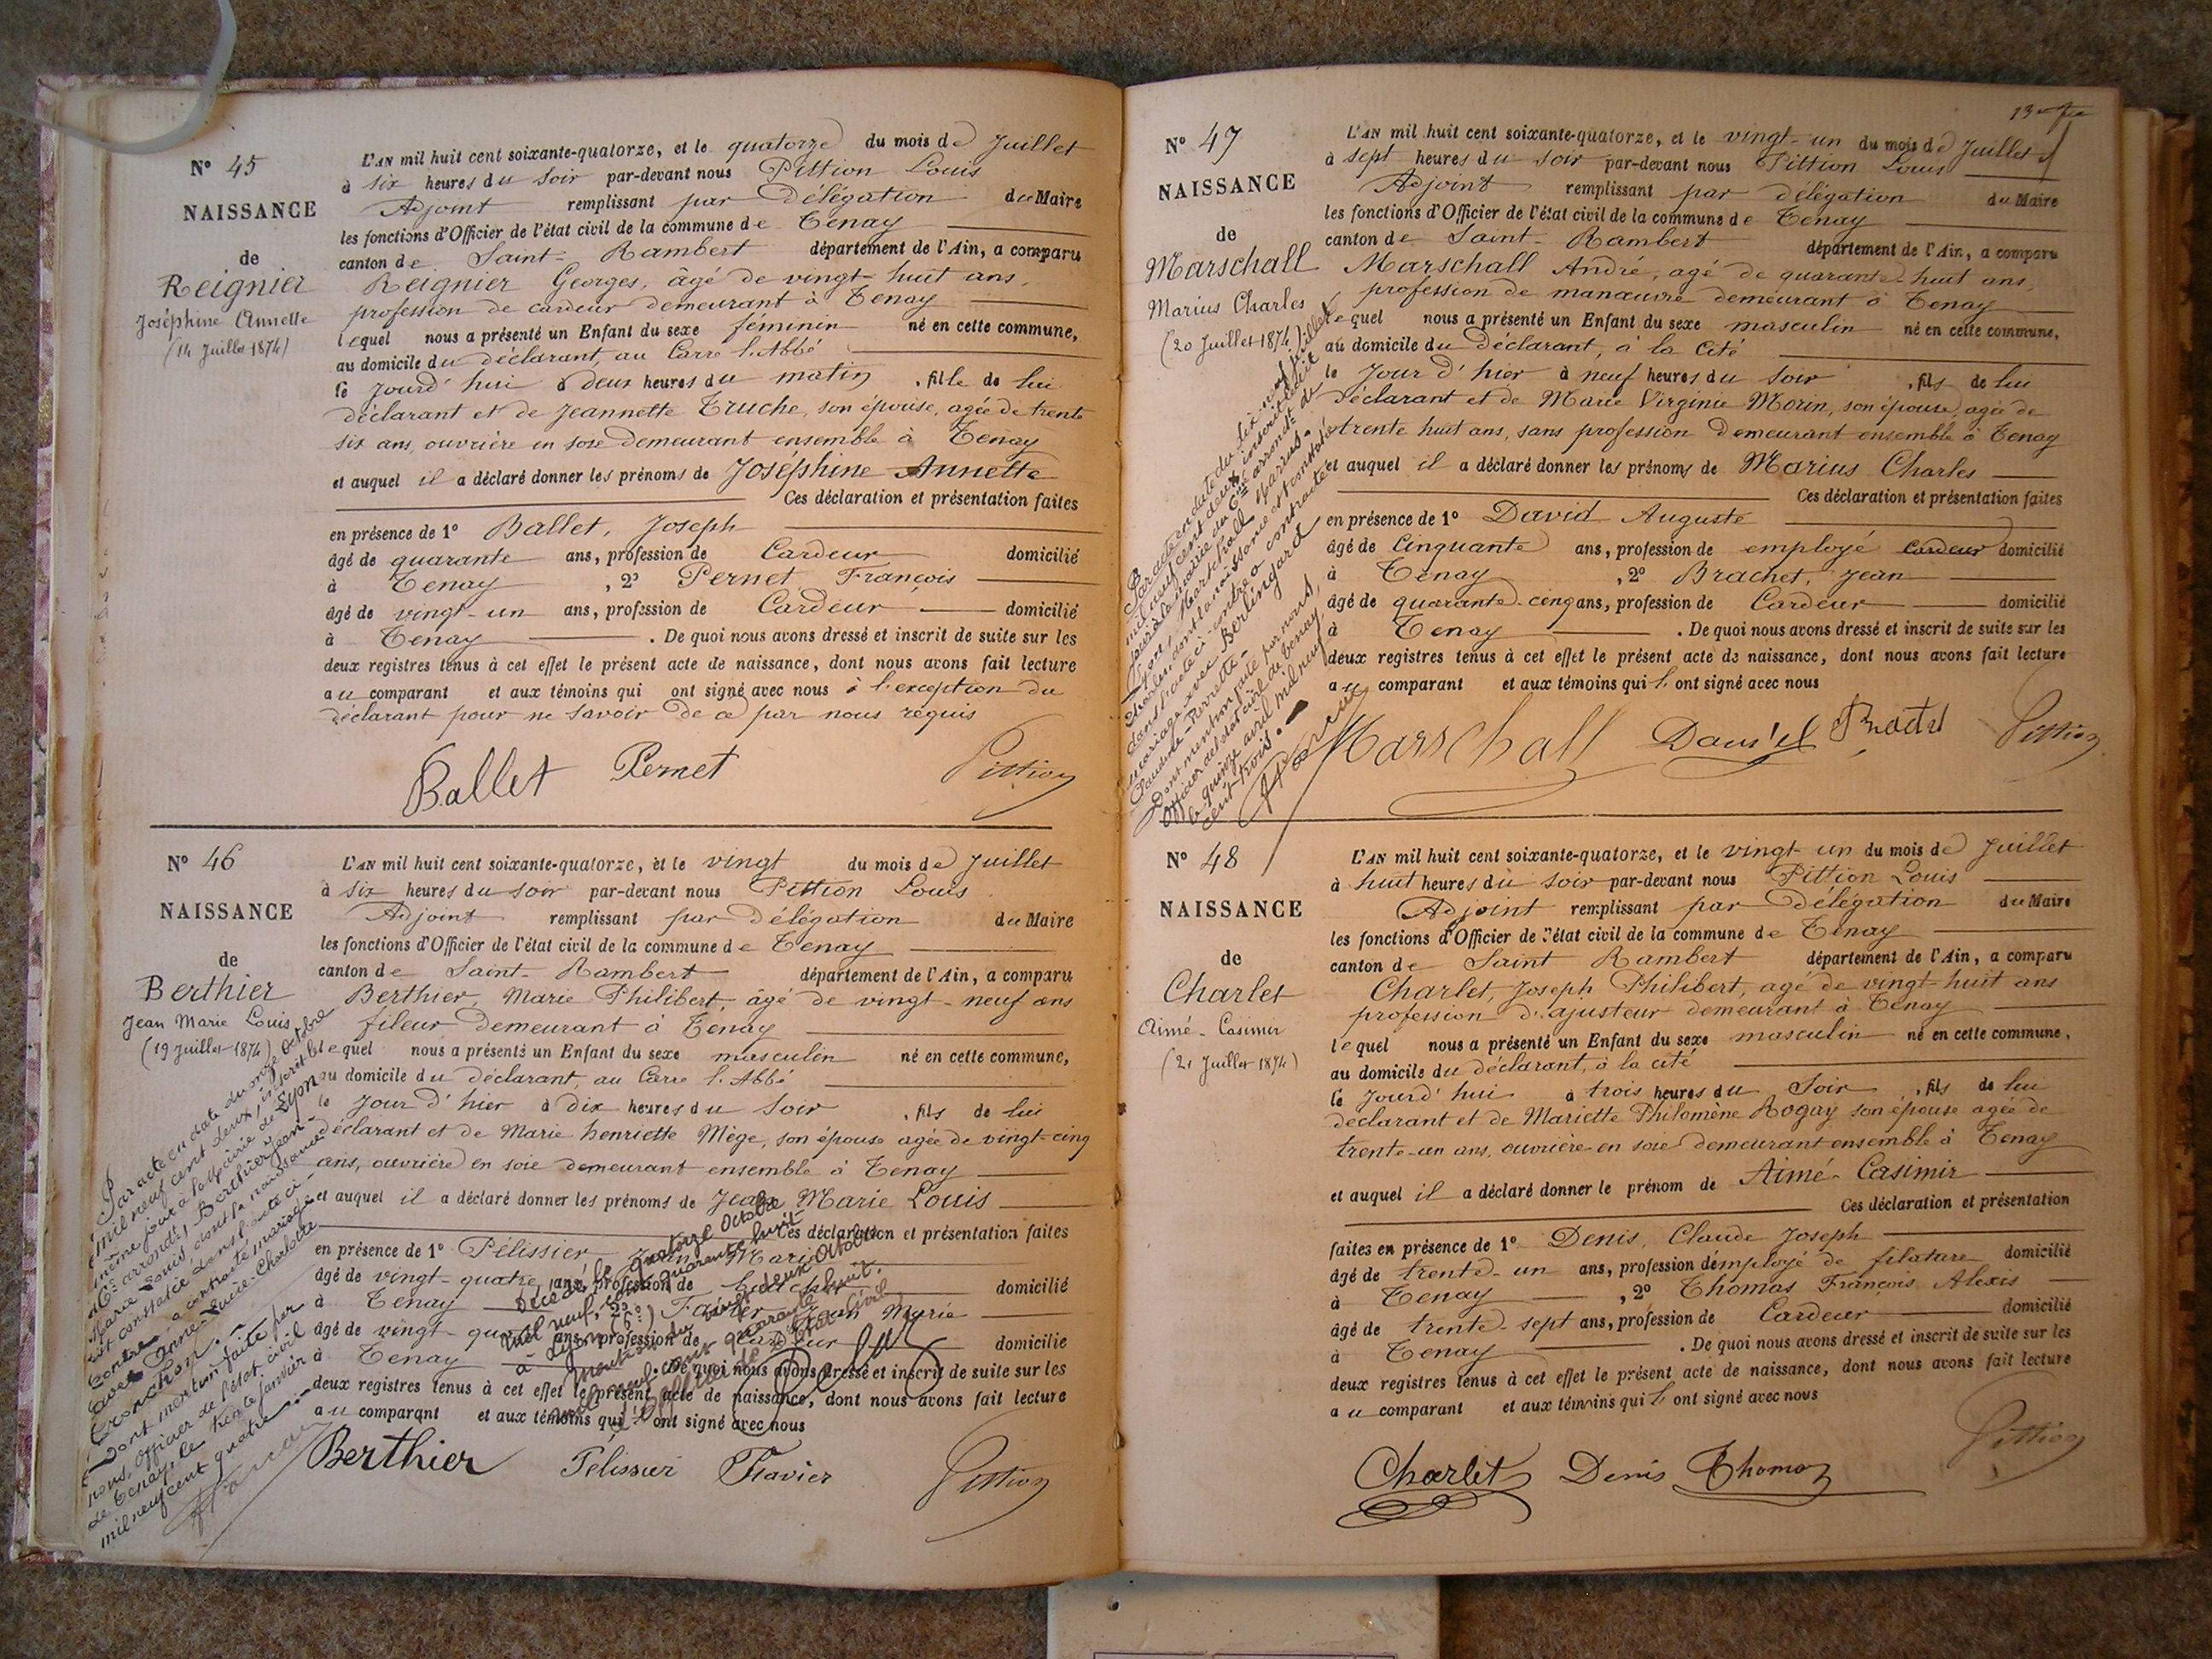 N° 45
NAISSANCE
de
Reignier
Joséphine Annette
(14 Juillet 1874)
L'AN mil huit cent soixante-quatorze, et le quatorze du mois de Juillet
à six heures du soir par-devant nous Pittion Louis
Adjoint remplissant par délégation du Maire
les fonctions d'Officier de l'état civil de la commune de Tenay
canton de Saint-Rambert département de l'Ain, a comparu
Reignier Georges, âgé de vingt-huit ans,
profession de cardeur demeurant à Tenay
lequel nous a présenté un Enfant du sexe féminin né en cette commune,
au domicile du déclarant, au Carre l'Abbé
le jourd'hui à deux heures du matin, fille de lui
déclarant et de Jeannette Truche, son épouse, agée de trente
six ans, ouvrière en soie demeurant ensemble à Tenay
et auquel il a déclaré donner les prénoms de Joséphine Annette
Ces déclaration et présentation faites
en présence de 1° Ballet, Joseph
âgé de quarante ans, profession de Cardeur domicilié
à Tenay, 2° Pernet François
âgé de vingt-un ans, profession de Cardeur domicilié
à Tenay. De quoi nous avons dressé et inscrit de suite sur les
deux registres tenus à cet effet le présent acte de naissance, dont nous avons fait lecture
au comparant et aux témoins qui ont signé avec nous à l'exception du
déclarant pour ne savoir de ce par nous requis
Ballet Pernet Pittion
N° 46
NAISSANCE
de
Berthier
Jean Marie Louis
(19 Juillet 1874)
Par acte en date du onze Octobre
mil neuf cent deux, inscrit le
même jour à la Mairie de Lyon
6e arrondt, Berthier Jean-
Marie-Louis dont la naissance
est constatée dans l'acte ci-
contre a contracté mariage
avec Anne-Lucie-Charlotte
Dont mention faite par
nous, officier de l'état civil
de Tenay, le trente janvier
mil neuf cent quatre
L'AN mil huit cent soixante-quatorze, et le vingt du mois de Juillet
à six heures du soir par-devant nous Pittion Louis
Adjoint remplissant par délégation du Maire
les fonctions d'Officier de l'état civil de la commune de Tenay
canton de Saint-Rambert département de l'Ain, a comparu
Berthier, Marie Philibert, âgé de vingt-neuf ans
fileur demeurant à Tenay
lequel nous a présenté un Enfant du sexe masculin né en cette commune,
au domicile du déclarant, au Carre l'Abbé
le jour d'hier à dix heures du soir, fils de lui
déclarant et de Marie henriette Mège, son épouse agée de vingt-cinq
ans, ouvrière en soie demeurant ensemble à Tenay
et auquel il a déclaré donner les prénoms de Jean Marie Louis
Ces déclaration et présentation faites
en présence de 1° Pélissier, Jean Marie
âgé de vingt-quatre ans, profession de domicilié
à Tenay, 2° Favier Jean Marie
âgé de vingt- ans, profession de Cardeur domicilié
à Tenay. De quoi nous avons dressé et inscrit de suite sur les
deux registres tenus à cet effet le présent acte de naissance, dont nous avons fait lecture
au comparant et aux témoins qui l'ont signé avec nous
Décédé le quatorze Octobre
mil neuf cent quarante huit
à Lyon (6e)
Mention du vingt deux Octobre
mil neuf cent quarante huit.
L'Officier de l'Etat Civil
Berthier Pélissier Favier Pittion
13
N° 47
NAISSANCE
de
Marschall
Marius Charles
(20 Juillet 1874)
Par acte en date du dix neuf juillet
mil neuf cent deux, inscrit le dit
jour à la mairie du 6me arrondt de
Lyon, Marschall Marius-
Charles dont la naissance est constatée
dans l'acte ci-contre a contracté
mariage avec Berlingard
Claudine-Pierrette-
Dont mention faite par nous,
officier de l'état civil de Tenay
le quinze avril mil neuf
cent trois.
L'AN mil huit cent soixante-quatorze, et le vingt-un du mois de Juillet
à sept heures du soir par-devant nous Pittion Louis
Adjoint remplissant par délégation du Maire
les fonctions d'Officier de l'état civil de la commune de Tenay
canton de Saint-Rambert département de l'Ain, a comparu
Marschall André, agé de quarante-huit ans,
profession de manœuvre demeurant à Tenay
lequel nous a présenté un Enfant du sexe masculin né en cette commune,
au domicile du déclarant, à la Cité
le jour d'hier à neuf heures du soir, fils de lui
déclarant et de Marie Virginie Morin, son épouse, agée de
trente huit ans, sans profession demeurant ensemble à Tenay
et auquel il a déclaré donner les prénoms de Marius Charles
Ces déclaration et présentation faites
en présence de 1° David Auguste
âgé de Cinquante ans, profession de employé cardeur domicilié
à Tenay, 2° Brachet, Jean
âgé de quarante-cinq ans, profession de Cardeur domicilié
à Tenay. De quoi nous avons dressé et inscrit de suite sur les
deux registres tenus à cet effet le présent acte de naissance, dont nous avons fait lecture
au comparant et aux témoins qui l'ont signé avec nous
Marschall Pittion
N° 48
NAISSANCE
de
Charlet
Aimé-Casimir
(21 Juillet 1874)
L'AN mil huit cent soixante-quatorze, et le vingt-un du mois de Juillet
à huit heures du soir par-devant nous Pittion Louis
Adjoint remplissant par délégation du Maire
les fonctions d'Officier de l'état civil de la commune de Tenay
canton de Saint Rambert département de l'Ain, a comparu
Charlet, Joseph Philibert, agé de vingt-huit ans
profession d'ajusteur demeurant à Tenay
lequel nous a présenté un Enfant du sexe masculin né en cette commune,
au domicile du déclarant, à la cité
le jourd'hui à trois heures du soir, fils de lui
déclarant et de Mariette Philomène Rogay son épouse agée de
trente-un ans, ouvrière en soie demeurant ensemble à Tenay
et auquel il a déclaré donner le prénom de Aimé-Casimir
Ces déclaration et présentation
faites en présence de 1° Denis, Claude Joseph
âgé de trente-un ans, profession d'employé de filature domicilié
à Tenay, 2° Thomas François Alexis
âgé de trente-sept ans, profession de Cardeur domicilié
à Tenay. De quoi nous avons dressé et inscrit de suite sur les
deux registres tenus à cet effet le présent acte de naissance, dont nous avons fait lecture
au comparant et aux témoins qui l'ont signé avec nous
Charlet Denis Thomas Pittion